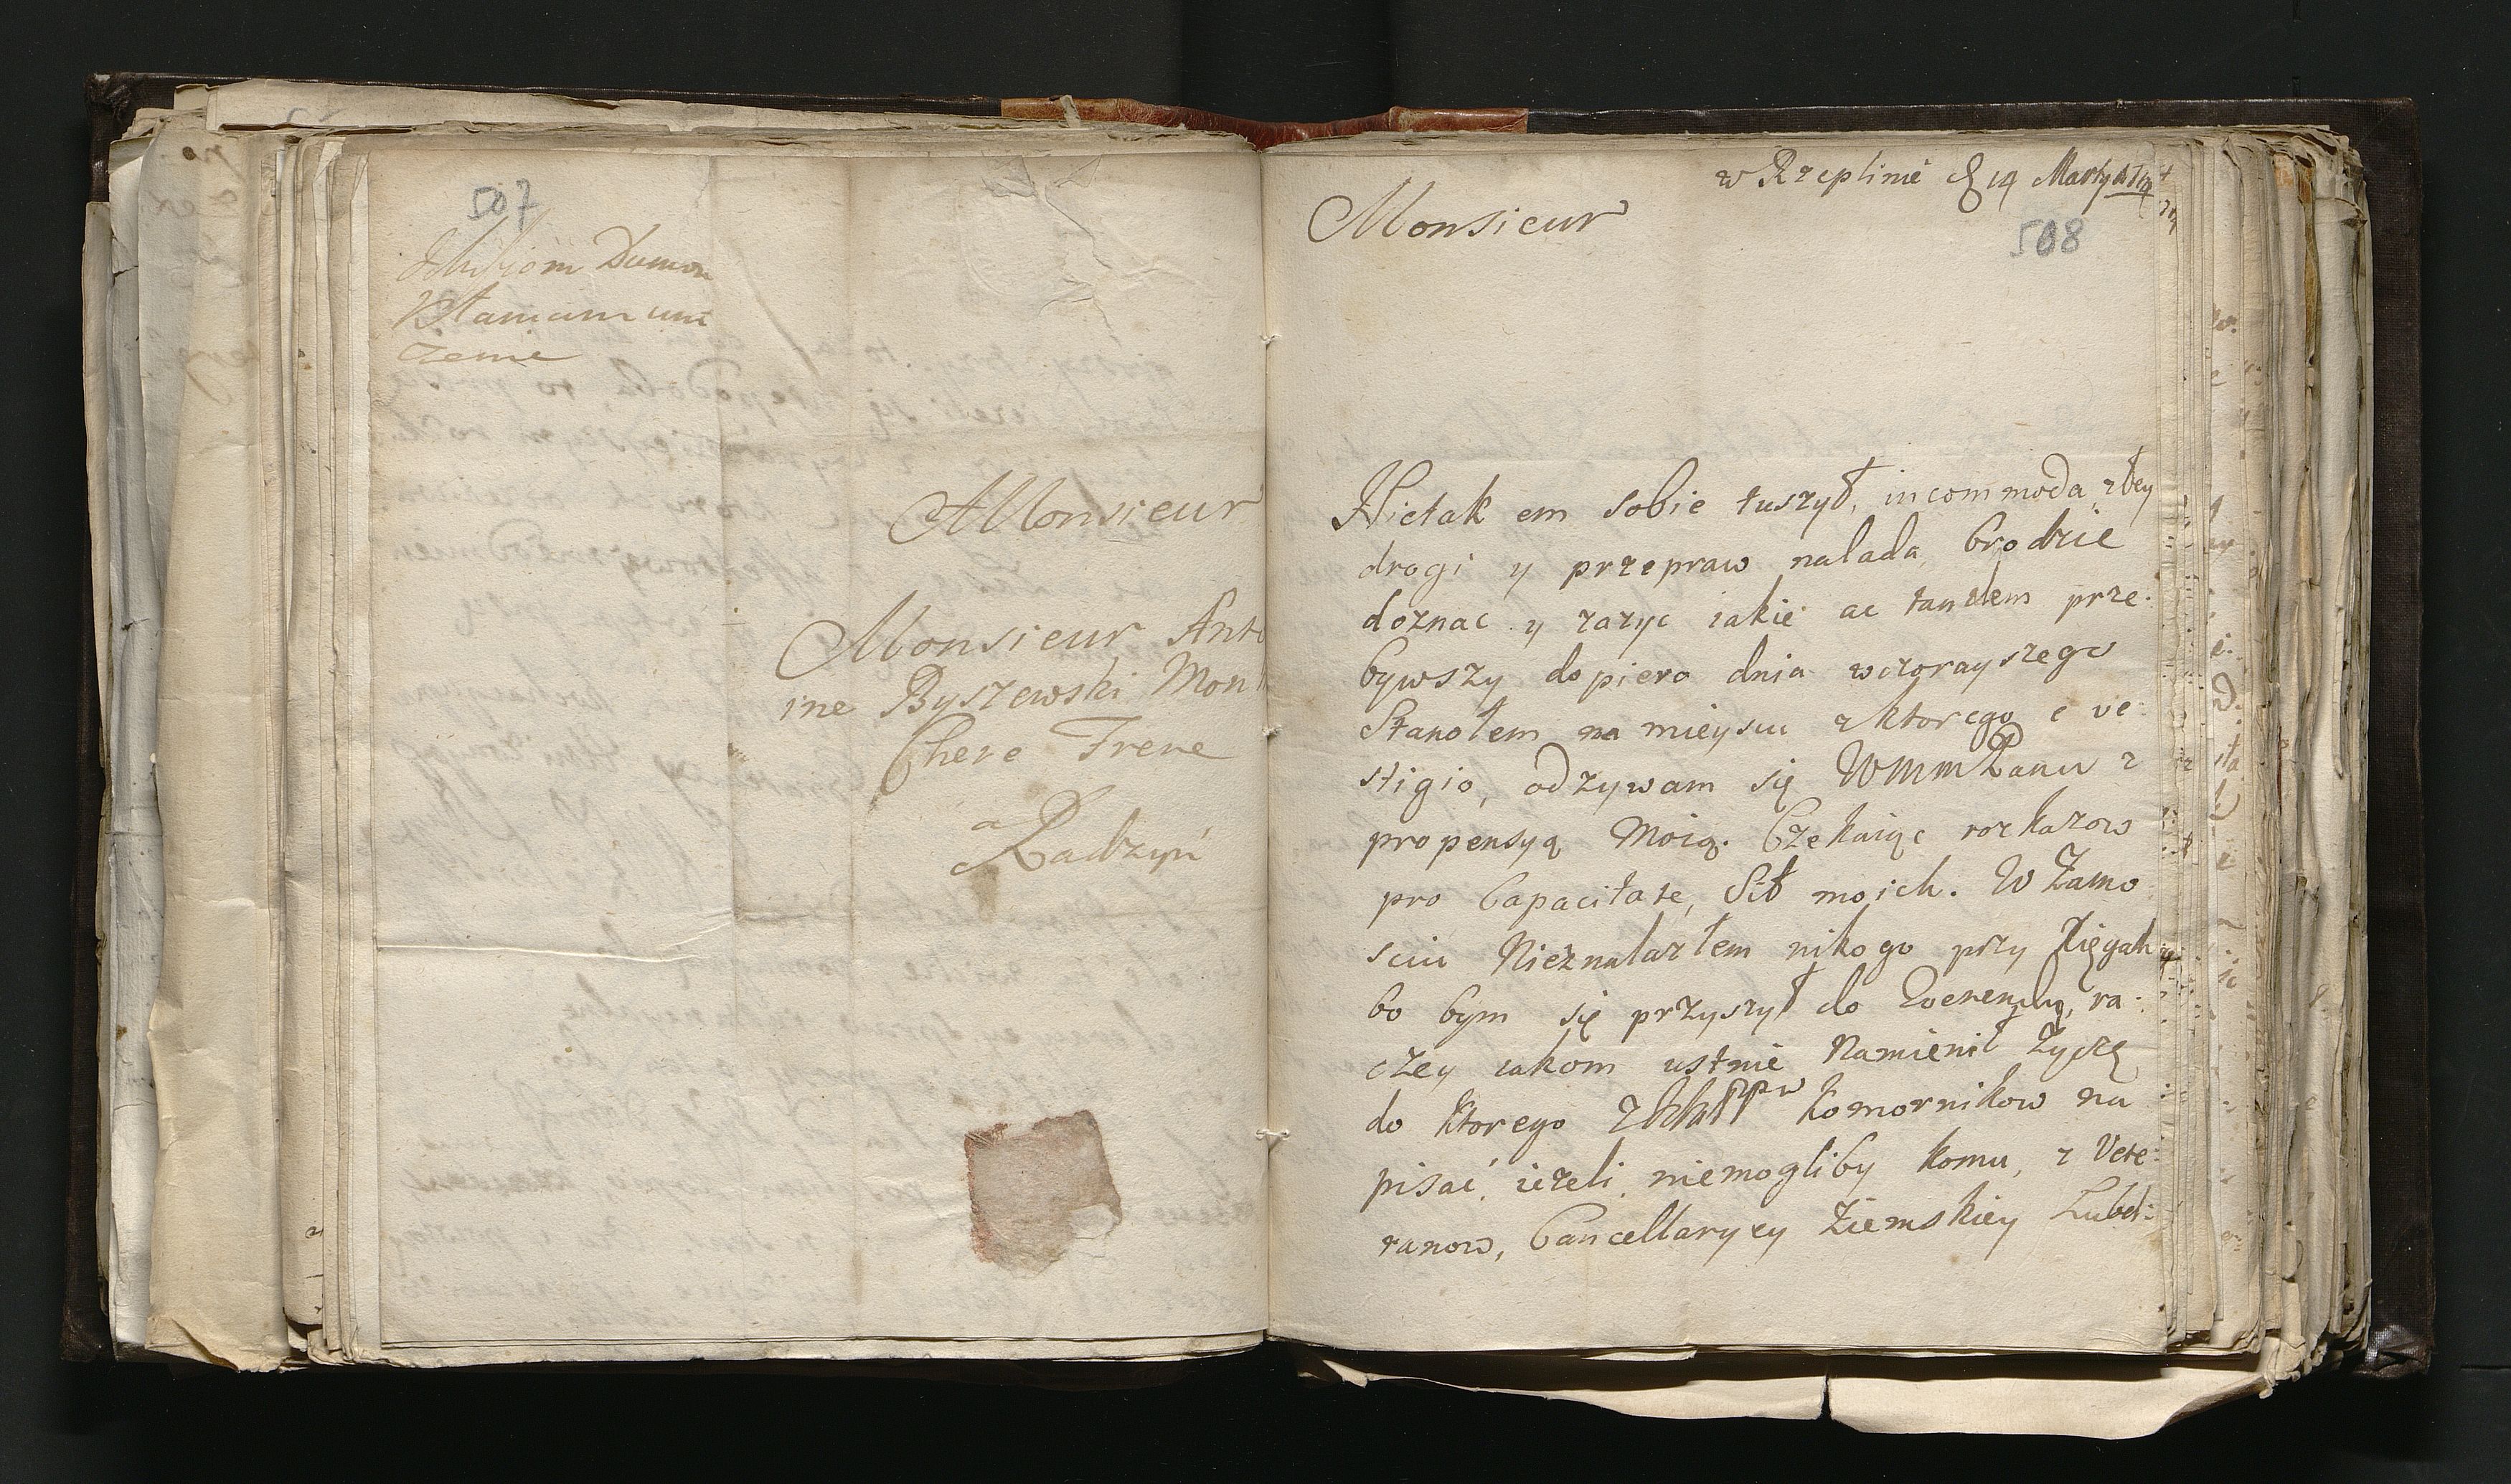 507
ptaniam uni
czenie
A Monsieur
Monsieur Anto
ine Byszewski Mon
Chere Frere
a
Radzyń
w Rzeplinie 14 Marty
508
Monsieur
Nietak em sobie tuszył, incommoda złey
drogi y przepraw nalada brodzie
doznac y zazyc iakie ac tandem prze-
bywszy dopiero dnia wczorayszego
Stanołem na mieyscu z ktorego e ve-
stigio, odzywam się WMMPanu z
propensyą Moią. Czekaiąc rozkazow
pro Capacitate, Sił moich. W Zamo
sciu Nieznalazłem nikogo przy Xięgah
bo bym się przyszył do ra-
czey iakom ustnie Namienił Zyczę
do ktorego Komornikow na
pisać, iezeli, niemogliby komu, z Vete-
ranow, Cancellaryey Ziemskiey Lubel-